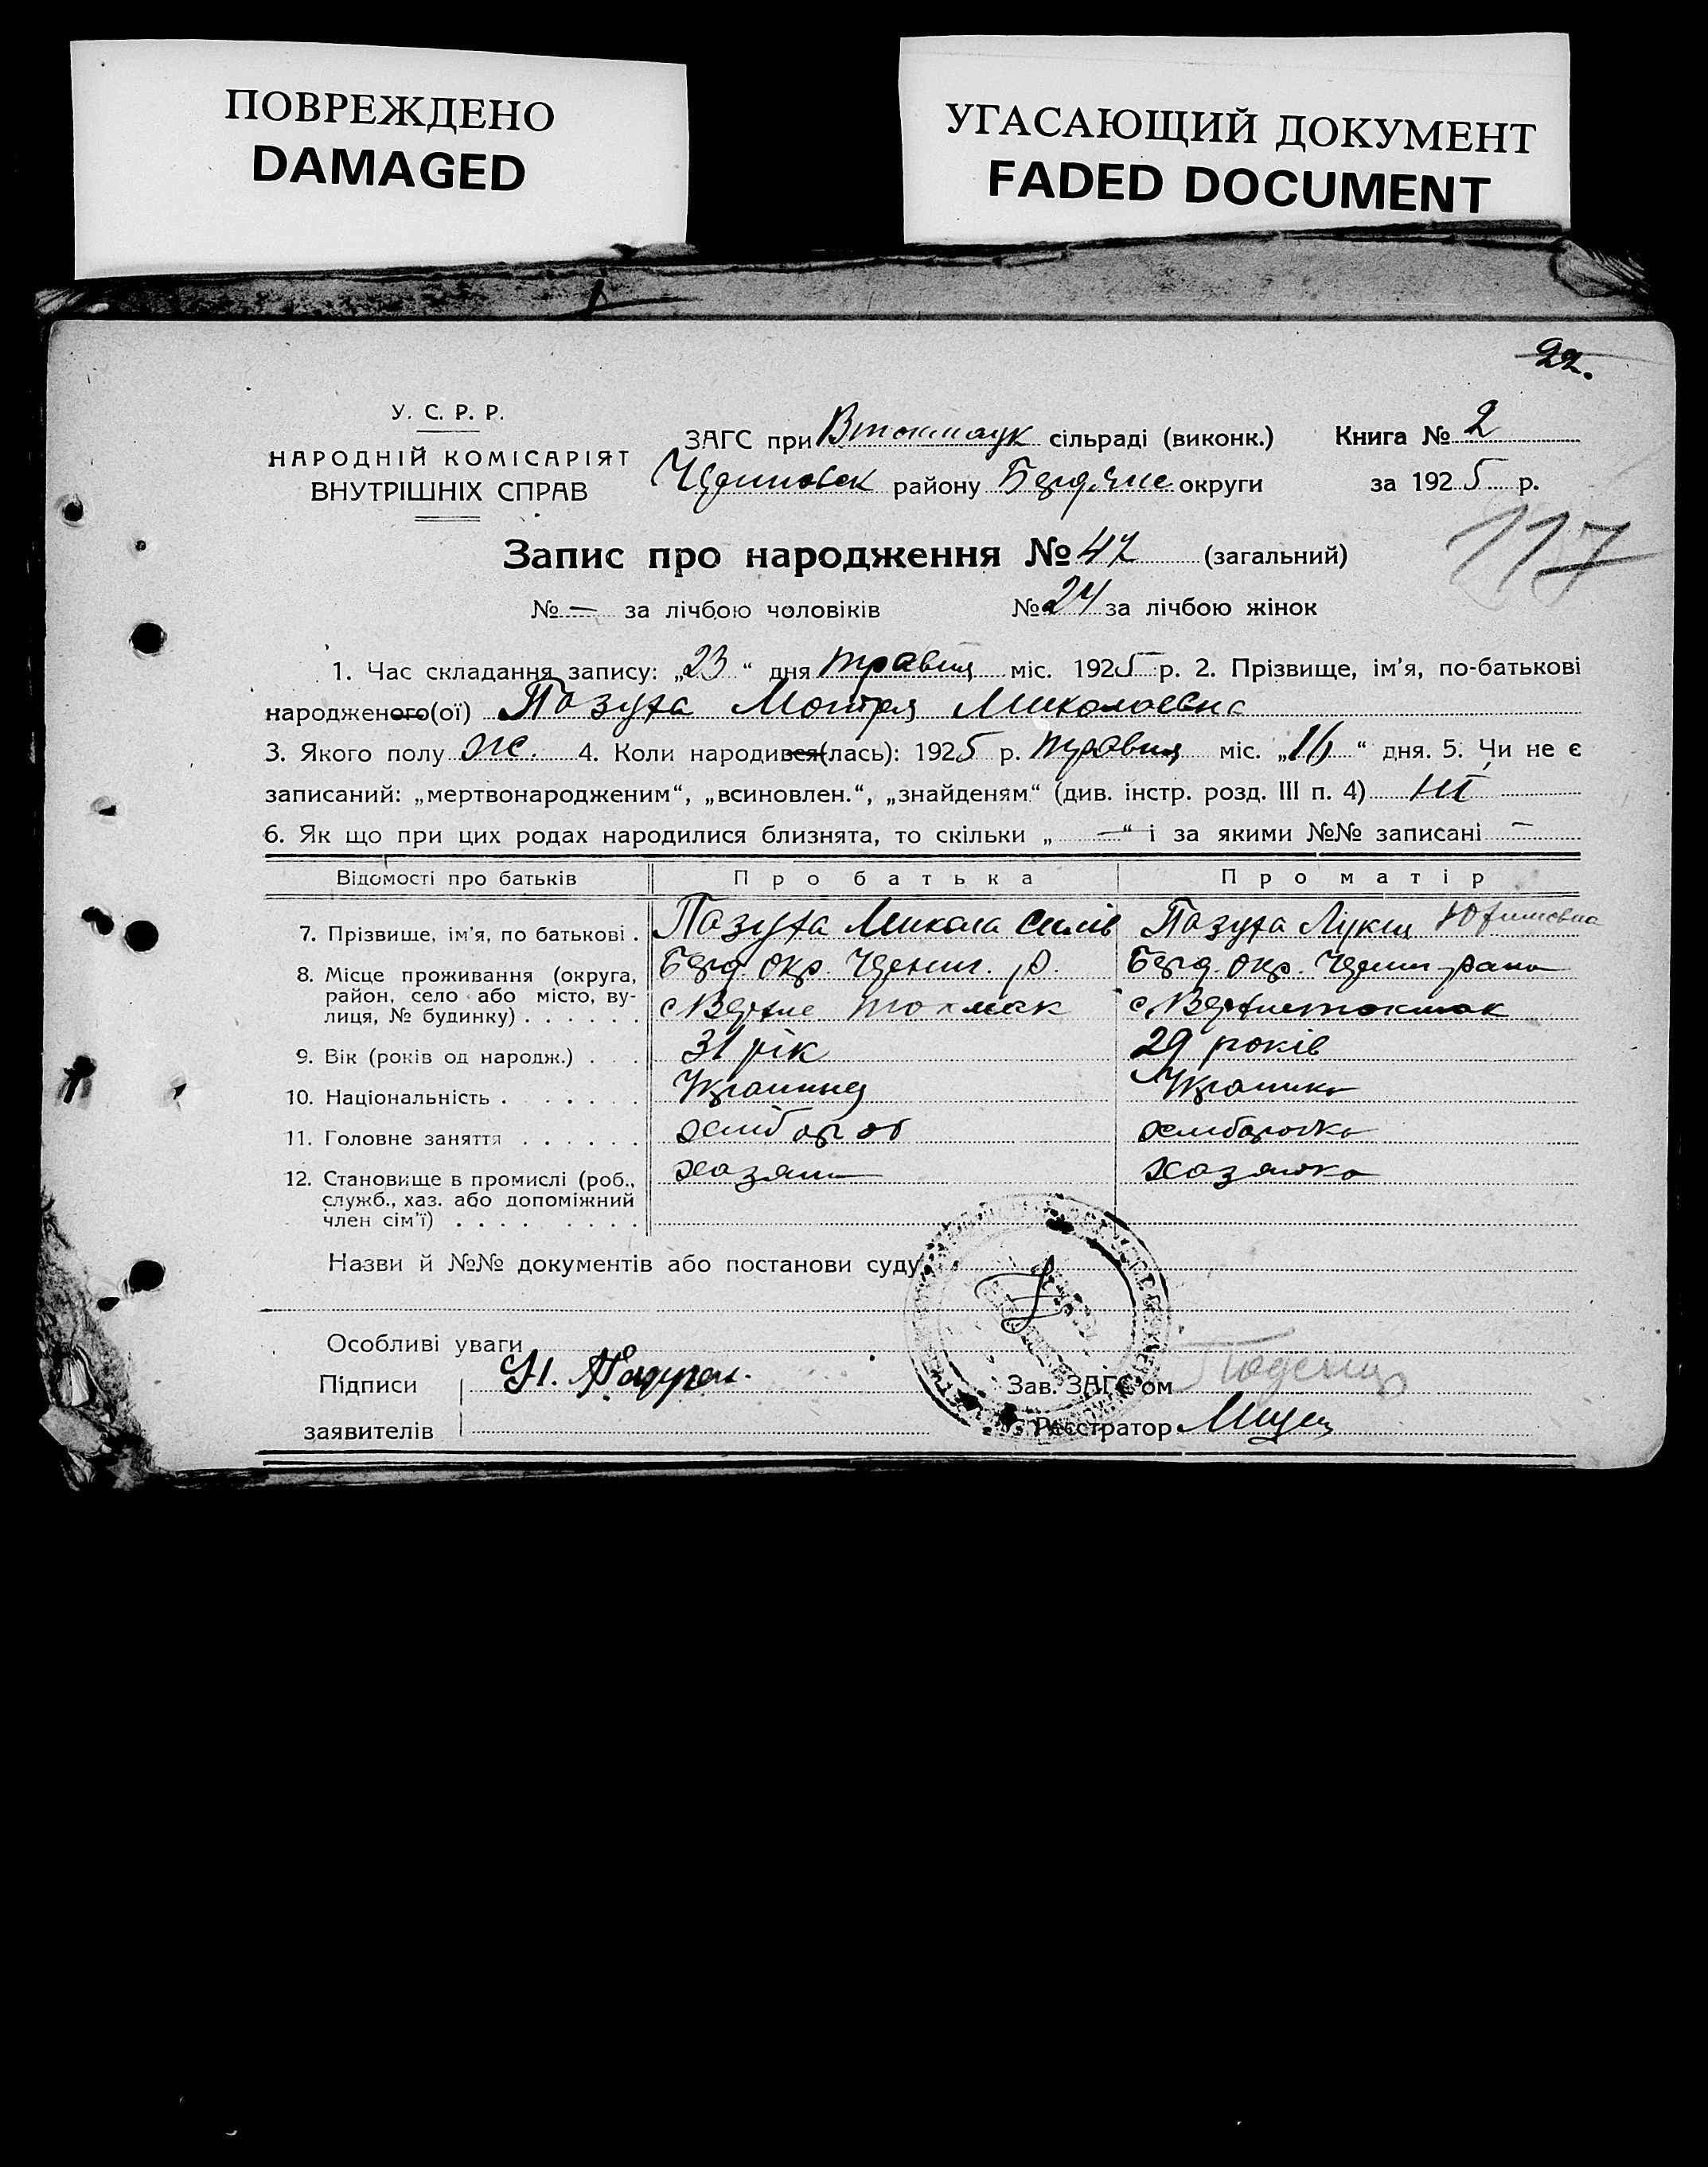 ПОВРЕЖДЕНО
DAMAGED
УГАСАЮЩИЙ ДОКУМЕНТ
FADED DOCUMENT
22.
У. С. Р. Р.
НАРОДНІЙ КОМІСАРІЯТ
ВНУТРІШНІХ СПРАВ
ЗАГС при сільраді (виконк.) Книга № 2
району округи за 1925 р.
117
Запис про народження № 47 (загальний)
№ — за лічбою чоловіків № 24 за лічбою жінок
1. Час складання запису: „23“ дня травня міс. 1925 р. 2. Прізвище, ім'я, по-батькові
народженого(ої) Пазуха Мотря Миколаевна
3. Якого полу ж. 4. Коли народився(лась): 1925 р. травня міс. „16“ дня. 5. Чи не є
записаний: „мертвонародженим“, „всиновлен.“, „знайденям“ (див. інстр. розд. III п. 4) ні
6. Як що при цих родах народилися близнята, то скільки „—“ і за якими №№ записані —
Відомості про батьків Про батька Про матір
7. Прізвище, ім'я, по батькові . Пазуха Микола Пазуха Лукия Юхимовна
8. Місце проживання (округа, Берд. окр. Черниг. р. Берд. окр. Черниг. рана
район, село або місто, ву-
лиця, № будинку) . . . . . . с Верхне Токмак с Верхнетокмак
9. Вік (років од народж.) . . 31 рік 29 років
10. Національність . . . . . . Українец Украинка
11. Головне заняття . . . . . . хлібороб хлиборобка
12. Становище в промислі (роб., хазяин хазяйка
служб., хаз. або допоміжний
член сім'ї) . . . . . . . .
Назви й №№ документів або постанови суду
Особливі уваги
Підписи
Зав. ЗАГС'ом
заявителів Реєстратор